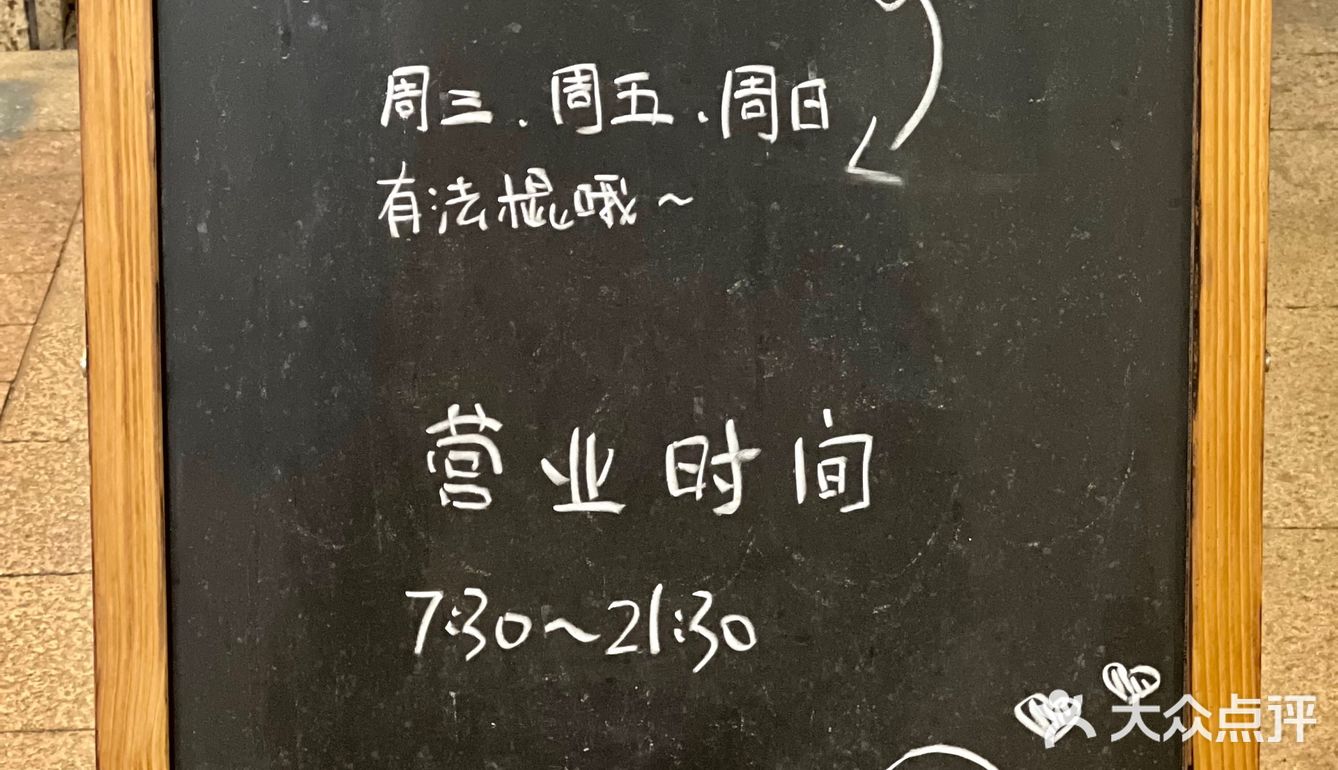 周三.周五.周日
有法棍哦~
营业时间
7:30~21:30
大众点评